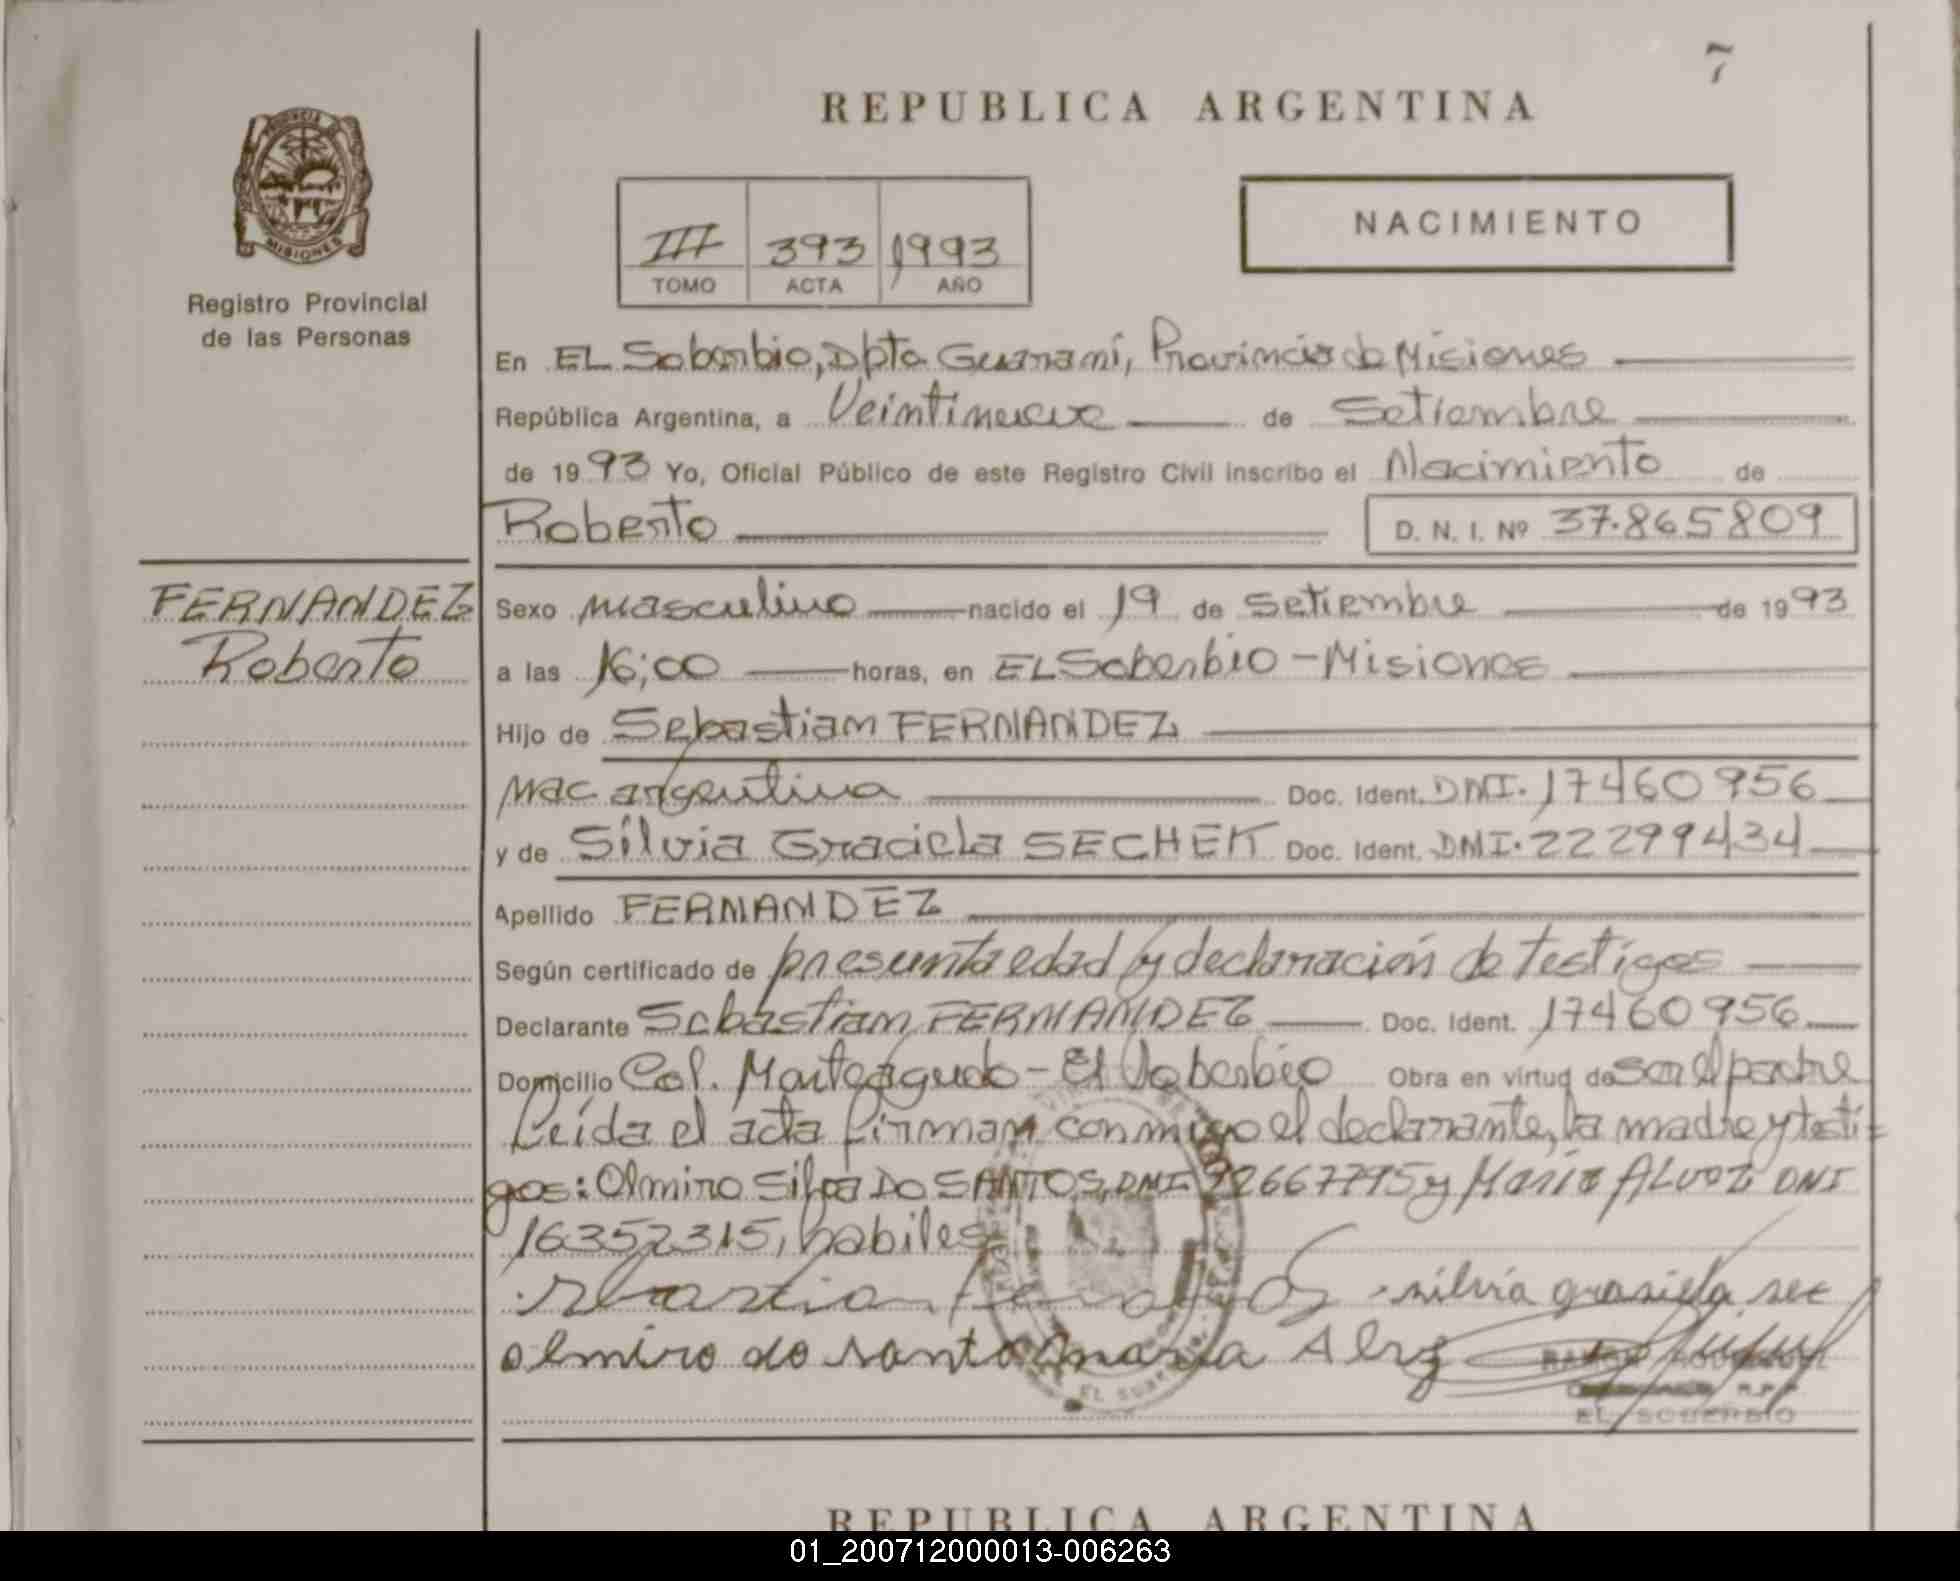 7
REPUBLICA ARGENTINA
PROVINCIA DE
MISIONES
Registro Provincial
de las Personas
III 393 1993
TOMO ACTA AÑO
NACIMIENTO
En EL Soberbio, Dpto Guarani, Provincia de Misiones
República Argentina, a Veintinueve de Setiembre
de 1993 Yo, Oficial Público de este Registro Civil inscribo el Nacimiento de
Roberto D. N. I. Nº 37.865809
FERNANDEZ
Roberto
Sexo masculino nacido el 19 de Setiembre de 1993
a las 16;00 horas, en EL Soberbio - Misiones
Hijo de Sebastian FERNANDEZ
Nac argentina Doc. Ident. DNI. 17460956
y de Silvia Graciela SECHEK Doc. Ident. DNI. 22299434
Apellido FERNANDEZ
Según certificado de presunta edad y declaración de testigos
Declarante Sebastian FERNANDEZ Doc. Ident. 17460956
Domicilio Col. Monteagudo - El Soberbio Obra en virtud de ser el padre
Leída el acta firman conmigo el declarante, la madre y testi=
gos: Olmiro Silva DO SANTOS, DNI 92667795 y Maria ALVEZ DNI
16352315, habiles
silvia grasiela sec
olmiro do santo maria Alvz
EL SOBERBIO
REPUBLICA ARGENTINA
01_200712000013-006263